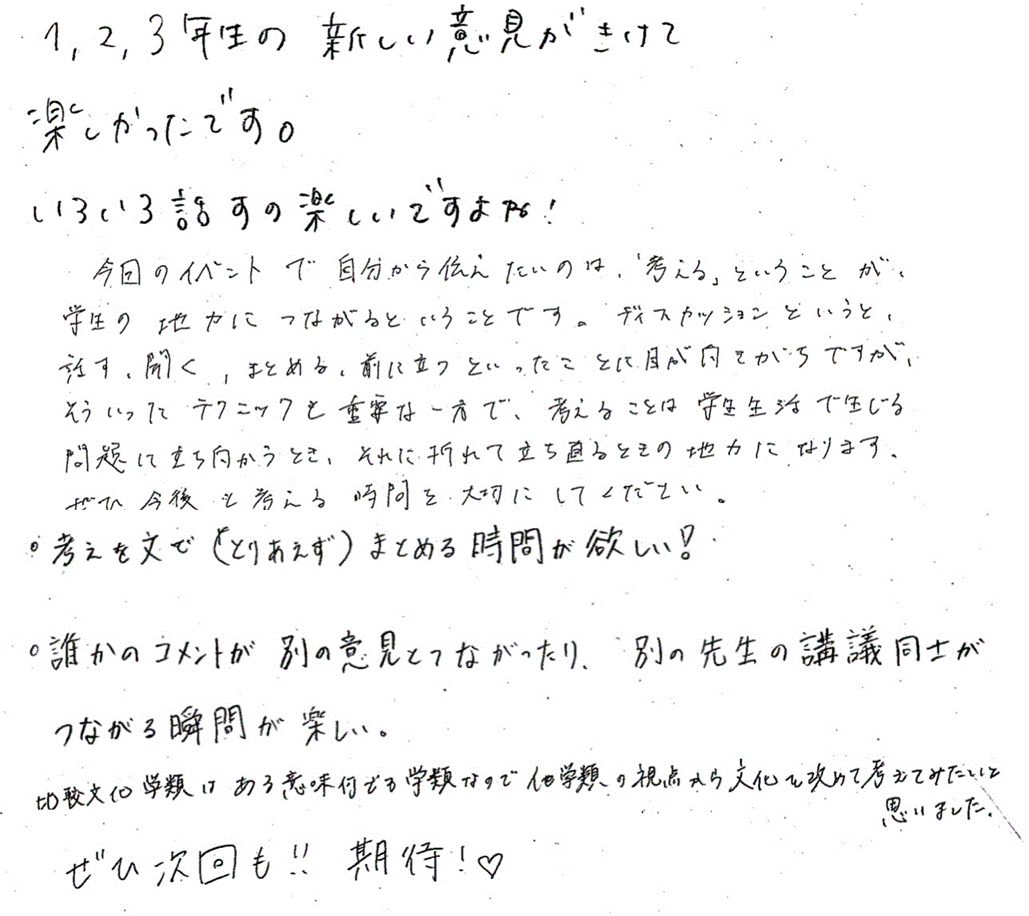 1,2,3年生の 新しい意見がきけて
楽しかったです。
いろいろ話すの楽しいですよね!
今回のイベントで自分から伝えたいのは、「考える」ということが、
学生の地力につながるということです。ディスカッションというと、
話す、聞く、まとめる、前に立つといったことに目が向きがちですが、
そういったテクニックも重要な一方で、考えることは学生生活で生じる
問題に立ち向かうとき、それに折れて立ち直るときの地力になります。
ぜひ今後も考える時間を大切にしてください。
○考えを文で(とりあえず)まとめる時間が欲しい!
○誰かのコメントが別の意見とつながったり、別の先生の講義同士が
つながる瞬間が楽しい。
比較文化学類はある意味何でも学類なので他学類の視点から文化を改めて考えてみたいと
思いました。
ぜひ次回も!! 期待!♡